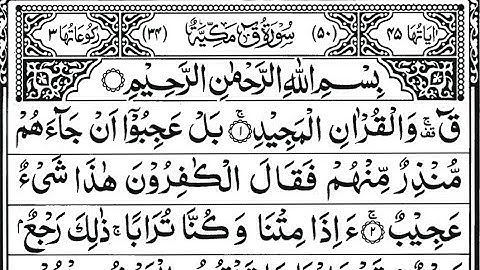 اٰیَاتُهَا ۴۵ (۵۰) سُوْرَةُ قٓ مَكِّيَّةٌ (۳۴) رُكُوْعَاتُهَا ۳
بِسْمِ اللّٰهِ الرَّحْمٰنِ الرَّحِيْمِ
قٓ ۚ وَالْقُرْاٰنِ الْمَجِيْدِ ۚ﴿۱﴾ بَلْ عَجِبُوْٓا اَنْ جَآءَهُمْ
مُّنْذِرٌ مِّنْهُمْ فَقَالَ الْكٰفِرُوْنَ هٰذَا شَىْءٌ
عَجِيْبٌ ۚ﴿۲﴾ ءَاِذَا مِتْنَا وَكُنَّا تُرَابًا ۚ ذٰلِكَ رَجْعٌۢ